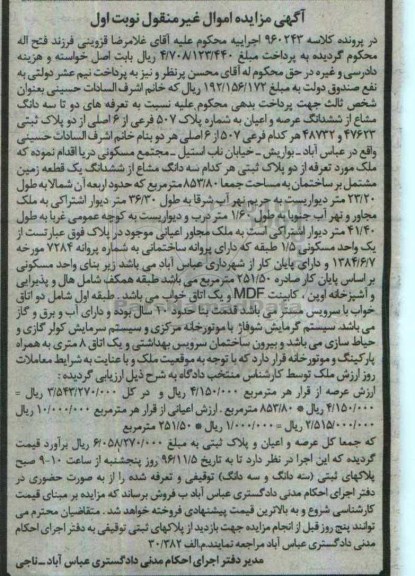 آگهی مزایده اموال غیرمنقول نوبت اول
در پرونده کلاسه ۹۶۰۲۴۳ اجراییه محکوم علیه آقای غلامرضا قزوینی فرزند فتح اله
محکوم گردیده به پرداخت مبلغ ۴/۷۰۸/۱۲۳/۴۴۰ ریال بابت اصل خواسته و هزینه
دادرسی و غیره در حق محکوم له آقای محسن پرنظر و نیز به پرداخت نیم عشر دولتی به
نفع صندوق دولت به مبلغ ۱۹۲/۱۵۶/۱۷۲ ریال که خانم اشرف السادات حسینی بعنوان
شخص ثالث جهت پرداخت بدهی محکوم علیه نسبت به تعرفه های دو تا سه دانگ
مشاع از ششدانگ عرصه و اعیان به شماره پلاک ۵۰۷ فرعی از ۶ اصلی از دو پلاک ثبتی
۴۷۶۲۳ و ۴۸۷۳۲ هر کدام فرعی ۵۰۷ از ۶ اصلی هر دو بنام خانم اشرف السادات حسینی
واقع در عباس آباد ـ بواریش ـ خیابان ناب استیل ـ مجتمع مسکونی دریا اقدام نموده که
ملک مورد تعرفه از دو پلاک ثبتی هر کدام سه دانگ مشاع از ششدانگ یک قطعه زمین
مشتمل بر ساختمان به مساحت جمعا ۸۵۳/۸۰ مترمربع که حدود اربعه آن شمالا به طول
۲۳/۲۰ متر دیواریست به حریم نهر آب شرقا به طول ۳۶/۳۰ متر دیوار اشتراکی به ملک
مجاور و نهر آب جنوبا به طول ۱/۶۰ متر درب و دیواریست به کوچه عمومی غربا به طول
۴۱/۴۰ متر دیوار اشتراکی است به ملک مجاور اعیانی موجود در پلاک فوق عبارتست از
یک واحد مسکونی ۱/۵ طبقه که دارای پروانه ساختمانی به شماره پروانه ۷۲۸۴ مورخه
۱۳۸۴/۶/۷ و دارای پایان کار از شهرداری عباس آباد می باشد زیر بنای واحد مسکونی
بر اساس پایان کار صادره ۲۵۱/۵۰ مترمربع می باشد طبقه همکف شامل هال و پذیرایی
و آشپزخانه اوپن ، کابینت MDF و یک اتاق خواب می باشد . طبقه اول شامل دو اتاق
خواب با سرویس مستر می باشد قدمت بنا حدود ۲۰ سال بوده و دارای آب و برق و گاز
می باشد. سیستم گرمایش شوفاژ با موتورخانه مرکزی و سیستم سرمایش کولر گازی و
حیاط سازی می باشد و بیرون ساختمان سرویس بهداشتی و یک اتاق ۸ متری به همراه
پارکینگ و موتورخانه قرار دارد که با توجه به موقعیت ملک و با عنایت به شرایط معاملات
روز ارزش ملک توسط کارشناس منتخب دادگاه به شرح ذیل ارزیابی گردیده :
ارزش عرصه از قرار هر مترمربع ۴/۱۵۰/۰۰۰ ریال و در کل ۳/۵۴۳/۲۷۰/۰۰۰ ریال =
۴/۱۵۰/۰۰۰ ریال * ۸۵۳/۸۰ مترمربع . ارزش اعیانی از قرار هر مترمربع ۱۰/۰۰۰/۰۰۰ ریال
۲/۵۱۵/۰۰۰/۰۰۰ ریال = ۱/۰۰۰/۰۰۰ ریال * ۲۵۱/۵۰ مترمربع
که جمعا کل عرصه و اعیان و پلاک ثبتی به مبلغ ۶/۰۵۸/۲۷۰/۰۰۰ ریال برآورد قیمت
گردیده که این اجرا در نظر دارد تا به تاریخ ۹۶/۱۱/۵ روز پنجشنبه از ساعت ۱۰-۹ صبح
پلاکهای ثبتی (سه دانگ و سه دانگ) توقیفی و تعرفه شده را از به صورت حضوری در
دفتر اجرای احکام مدنی دادگستری عباس آباد ب فروش برساند که مزایده بر مبنای قیمت
کارشناسی شروع و به بالاترین قیمت پیشنهادی فروخته خواهد شد . متقاضیان محترم می
توانند پنج روز قبل از انجام مزایده جهت بازدید از پلاکهای ثبتی توقیفی به دفتر اجرای احکام
مدنی دادگستری عباس آباد مراجعه نمایند.م.الف ۳۰/۳۸۲
مدیر دفتر اجرای احکام مدنی دادگستری عباس آباد ـ ناجی